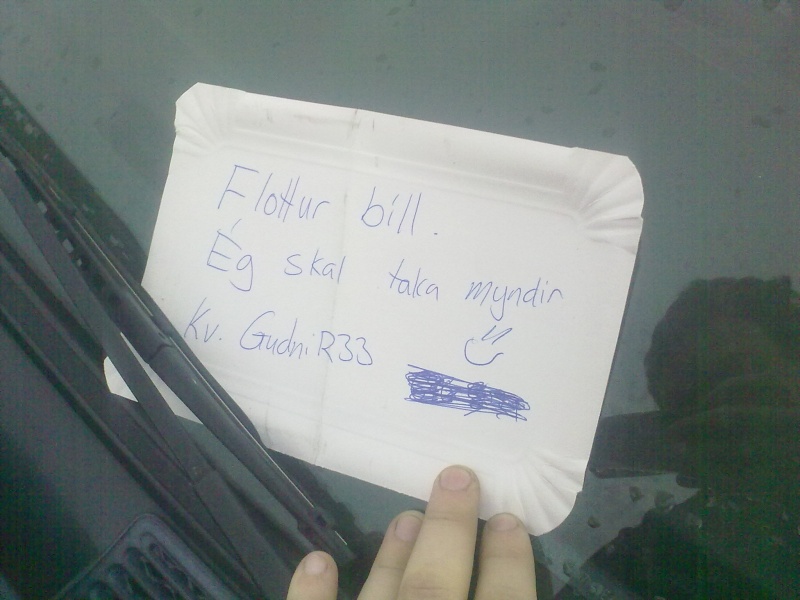 Flottur bíll.
Ég skal taka myndir
Kv. GudniR33